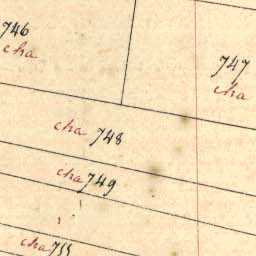 746
cha
747
cha
cha 748
cha 749
cha 755